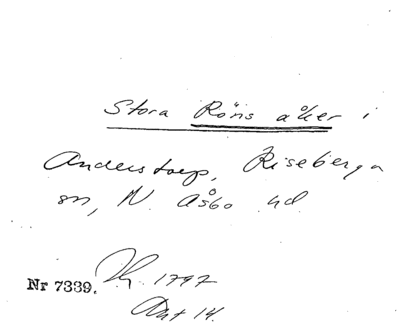 Stora Röns åker i
Anderstorp, Riseberga
sn, N. Åsbo hd
Nr 7339. 1797
Akt 14.